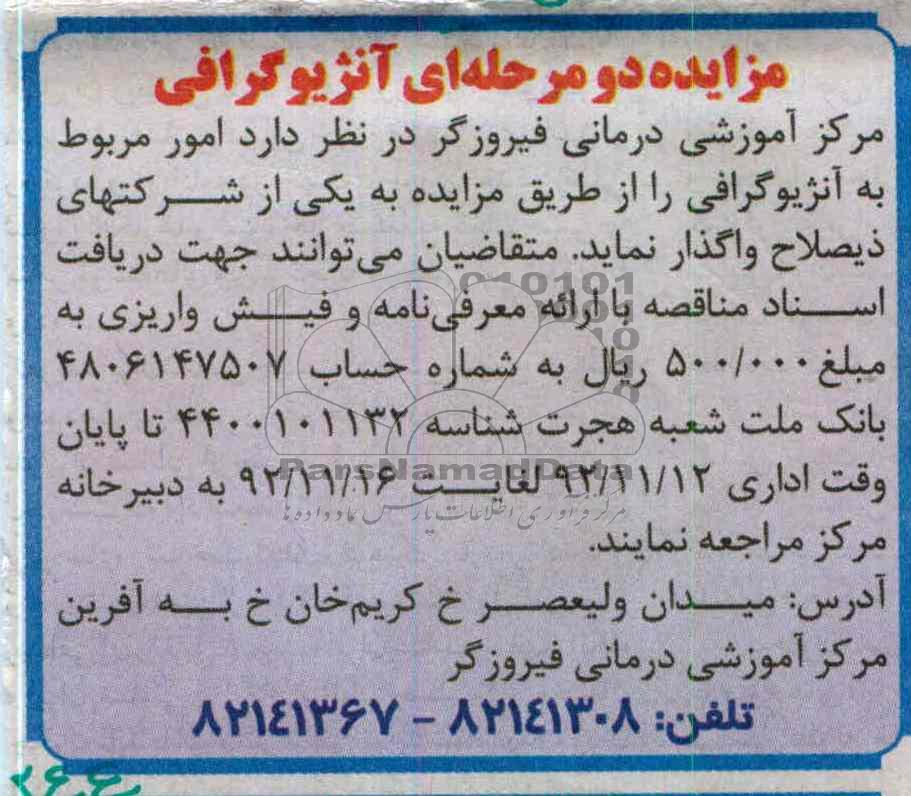 مزایده دو مرحله‌ای آنژیوگرافی
مرکز آموزشی درمانی فیروزگر در نظر دارد امور مربوط
به آنژیوگرافی را از طریق مزایده به یکی از شرکتهای
ذیصلاح واگذار نماید. متقاضیان می‌توانند جهت دریافت
اسناد مناقصه با ارائه معرفی‌نامه و فیش واریزی به
مبلغ ۵۰۰/۰۰۰ ریال به شماره حساب ۴۸۰۶۱۴۷۵۰۷
بانک ملت شعبه هجرت شناسه ۴۴۰۰۱۰۱۱۳۲ تا پایان
وقت اداری ۹۲/۱۱/۱۲ لغایت ۹۲/۱۱/۱۶ به دبیرخانه
مرکز مراجعه نمایند.
آدرس: میدان ولیعصر خ کریم‌خان خ به آفرین
مرکز آموزشی درمانی فیروزگر
تلفن: ۸۲۱۴۱۳۰۸ - ۸۲۱۴۱۳۶۷
ParsNamadData
مرکز فرآوری اطلاعات پارس نماد داده ها